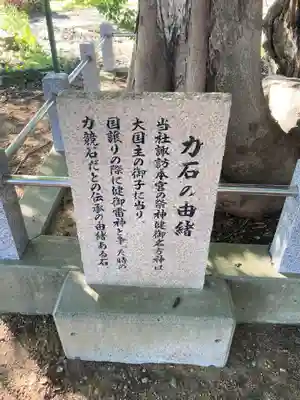 力石の由緒
当社諏訪本宮の祭神健御名方神は
大国主の御子に当り、
国譲りの際に健御雷神と争った時の
力競石だとの伝承の由緒ある石